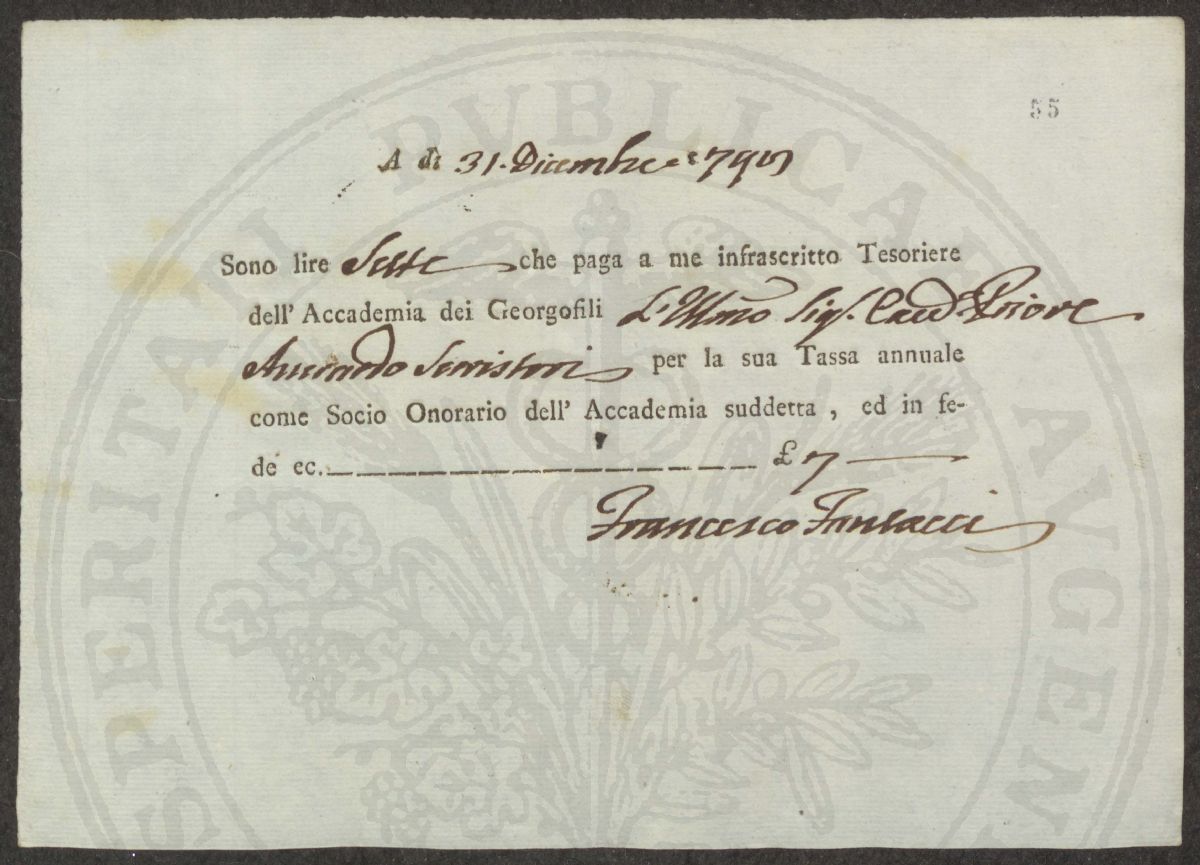 55
A dì 31. Dicembre
Sono lire Sette che paga a me infrascritto Tesoriere
dell' Accademia dei Georgofili L'Illmo Sigr. Cavr. Priore
Averardo Serristori per la sua Tassa annuale
come Socio Onorario dell' Accademia suddetta, ed in fe-
de ec. £ 7
Francesco Fantacci
PROSPERITATI PUBLICAE AUGEN